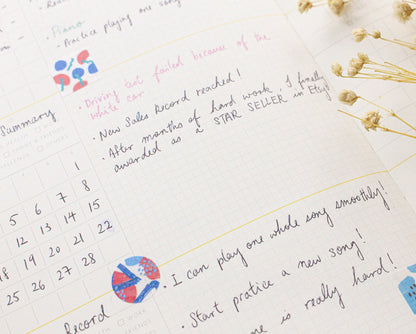 Piano
• Practice playing one song
• Driving test failed because of the
white car
• New Sales Record reached!
• After months of hard work, I finally
awarded as a STAR SELLER in Etsy
Summary
1
5 6 7 8
12 13 14 15
18 19 20 21 22
25 26 27 28
Record
• I can play one whole song smoothly!
• Start pratice a new song!
is really hard!